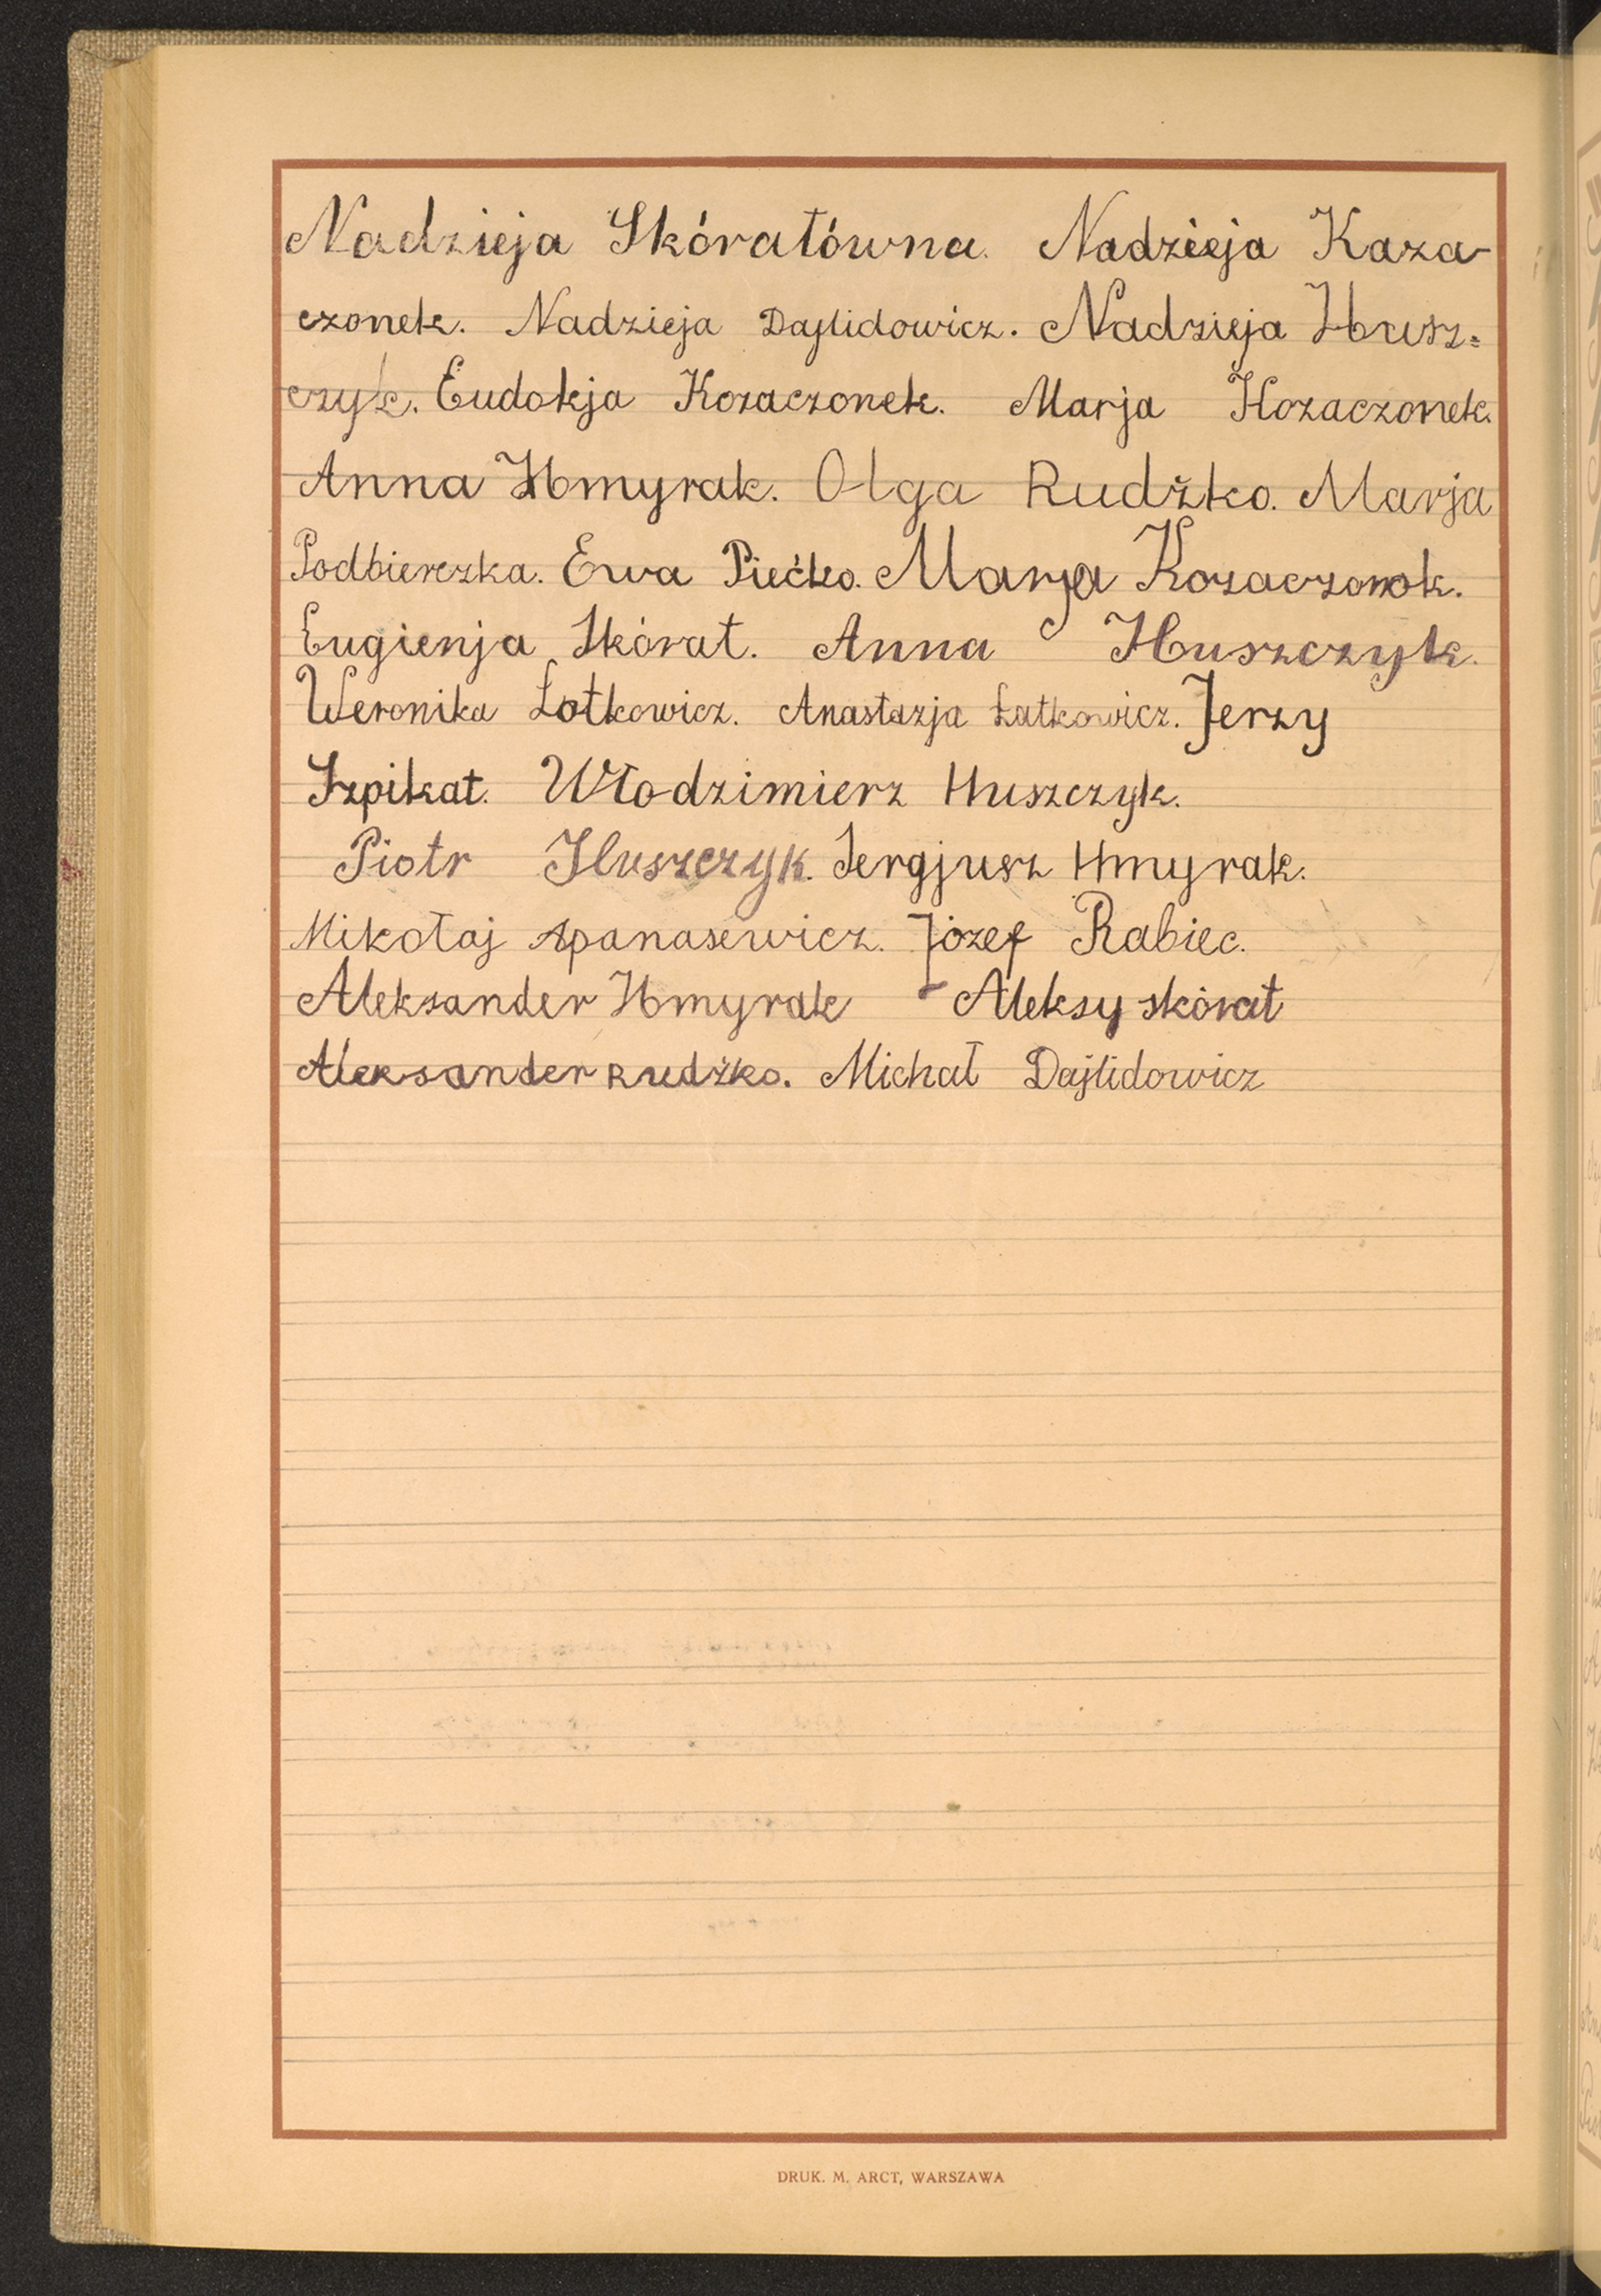 Nadzieja Skóratówna. Nadzieja Kaza-
czonek. Nadzieja Dajlidowicz. Nadzieja Husz=
czyk. Eudokja Kozaczonek. Marja Kozaczonek.
Anna Hmyrak. Olga Rudźko. Marja
Podbierezka. Ewa Piećko. Marja Kozaczonok.
Eugienja Skórat. Anna Huszczyk.
Weronika Łotkowicz. Anastazja Łatkowicz. Jerzy
Szpikat. Włodzimierz Huszczyk.
Piotr Huszczyk. Sergjusz Hmyrak.
Mikołaj Apanasewicz. Józef Rabiec.
Aleksander Hmyrak Aleksy skórat
Aleksander Rudźko. Michał Dajlidowicz
DRUK. M. ARCT, WARSZAWA